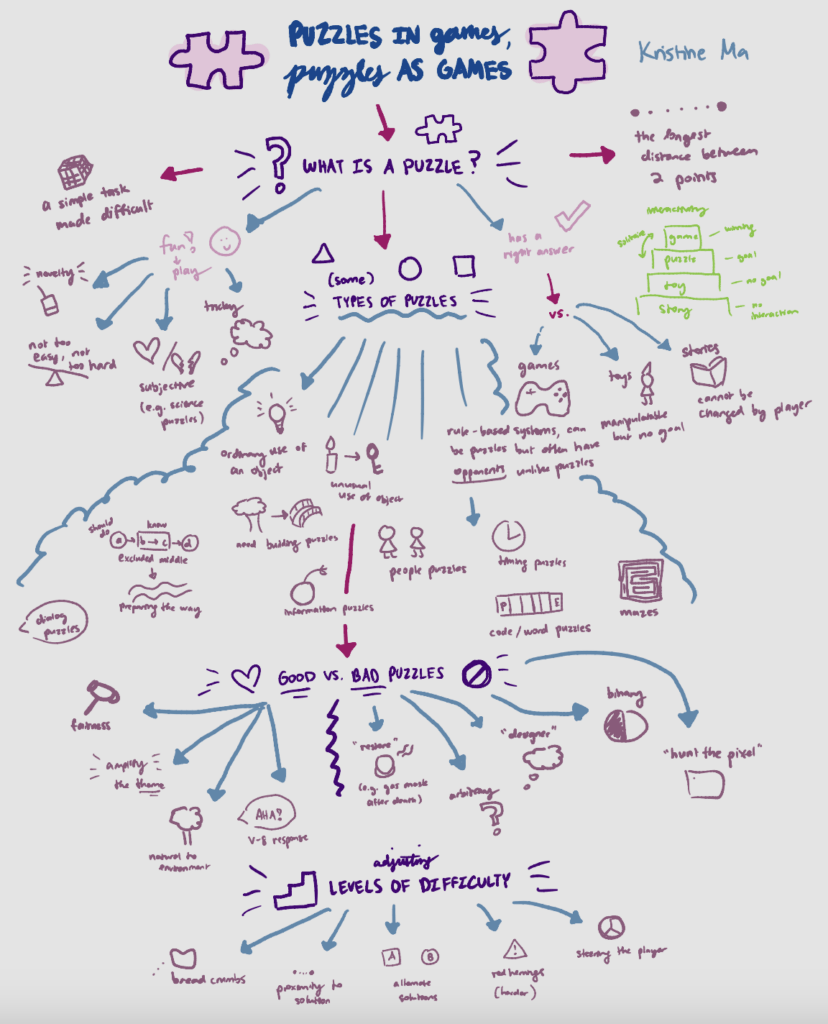 PUZZLES IN games,
puzzles AS GAMES
Kristine Ma
? WHAT IS A PUZZLE?
a simple task
made difficult
the longest
distance between
2 points
fun?
play
novelty
not too
easy, not
too hard
subjective
(e.g. science
puzzles)
today
has a
right answer
vs.
interactivity
game
winning
puzzle
goal
toy
no goal
story
no
interaction
games
rule-based systems, can
be puzzles but often have
opponents unlike puzzles
toys
manipulatable
but no goal
stories
cannot be
changed by player
(some)
TYPES OF PUZZLES
ordinary use of
an object
unusual
use of object
should
do
know
a
b → c
d
excluded middle
preparing the way
dialog
puzzles
building puzzles
information puzzles
people puzzles
timing puzzles
P
E
code/word puzzles
mazes
GOOD VS. BAD PUZZLES
fairness
amplify
the theme
natural to
environment
AHA?
V-8 response
"restore"
(e.g. gas mask
after death)
arbitrary
?
"designer"
binary
"hunt the pixel"
adjusting
LEVELS OF DIFFICULTY
bread crumbs
proximity to
solution
A
B
alternate
solutions
!
red herrings
(harder)
steering the player